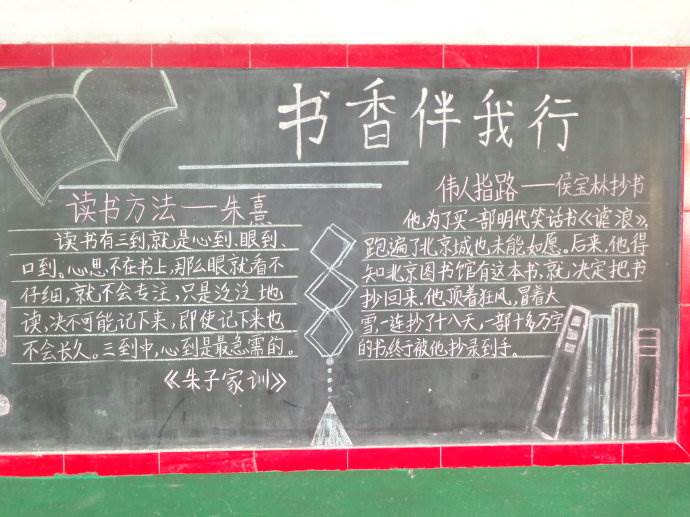 书香伴我行
读书方法——朱熹
读书有三到,就是心到、眼到、
口到。心思不在书上,那么眼就看不
仔细,就不会专注,只是泛泛地
读,决不可能记下来,即使记下来也
不会长久。三到中,心到是最急需的。
《朱子家训》
伟人指路——侯宝林抄书
他为了买一部明代笑话书《谑浪》,
跑遍了北京城也未能如愿。后来,他得
知北京图书馆有这本书,就决定把书
抄回来。他顶着狂风,冒着大
雪,一连抄了十八天,一部十多万字
的书,终于被他抄录到手。